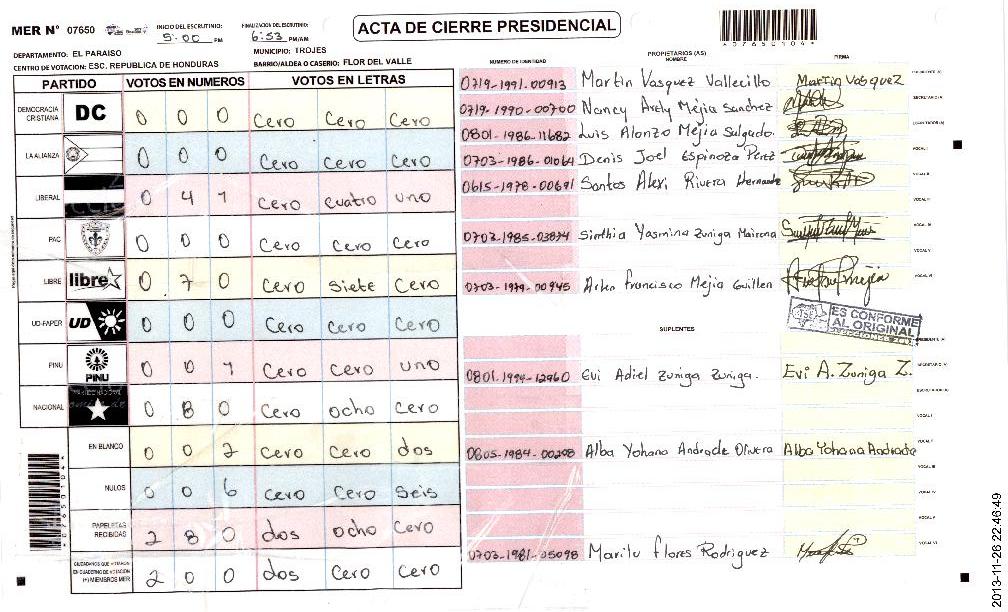 MER N° 07650
INICIO DEL ESCRUTINIO:
5:00 PM
FINALIZACION DEL ESCRUTINIO:
6:53 PM/AM
ACTA DE CIERRE PRESIDENCIAL
*07650104*
DEPARTAMENTO: EL PARAISO
MUNICIPIO: TROJES
CENTRO DE VOTACION: ESC. REPUBLICA DE HONDURAS
BARRIO/ALDEA O CASERIO: FLOR DEL VALLE
PARTIDO VOTOS EN NUMEROS VOTOS EN LETRAS
DEMOCRACIA CRISTIANA DC 0 0 0 Cero Cero Cero
LA ALIANZA 0 0 0 Cero Cero Cero
LIBERAL 0 4 1 Cero cuatro uno
PAC 0 0 0 Cero Cero Cero
LIBRE libre 0 7 0 Cero Siete Cero
UD-FAPER UD 0 0 0 Cero Cero Cero
PINU PINU 0 0 1 Cero Cero uno
NACIONAL 0 8 0 Cero ocho Cero
EN BLANCO 0 0 2 Cero Cero dos
NULOS 0 0 6 Cero Cero Seis
PAPELETAS RECIBIDAS 2 8 0 dos ocho Cero
CIUDADANOS QUE VOTARON EN CUADERNO DE VOTACION (+) MIEMBROS MER 2 0 0 dos Cero Cero
*07650104*
NUMERO DE IDENTIDAD
PROPIETARIOS (AS)
NOMBRE
FIRMA
0719-1991-00913 Martin Vasquez Vallecillo Martin Vasquez
0719-1990-00700 Nancy Arely Mejia Sanchez
0801-1986-11682 Luis Alonzo Mejia Salgado.
0703-1986-01064 Denis Joel Espinoza Perez
0615-1978-00691 Santos Alexi Rivera Hernande
0703-1985-03874 Sinthia Yasmina Zuniga Mairena
0703-1979-00945 Francisco Mejia Guillen
ES CONFORME
AL ORIGINAL
SUPLENTES
0801-1994-12960 Evi Adiel Zuniga Zuniga. Evi A. Zuniga Z.
0805-1984-00298 Alba Yohana Andrade Olivera Alba Yohana Andrade
0703-1981-05098 Marilu Flores Rodriguez
2013-11-26 22:46:49